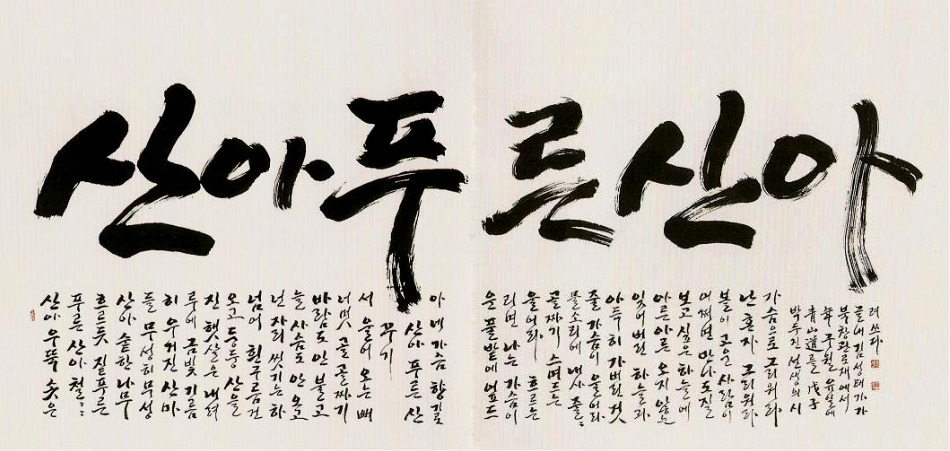 산아푸른산아
산아 우뚝 솟은
푸른 산아 철철
흐르듯 짙푸른
산아 숱한 나무
들 무성히 무성
히 우거진 산마
루에 금빛 기름
진 햇살은 내려
오고 둥둥 산을
넘어 흰구름 건
넌 자리 씻기는 하
늘 사슴도 안 오고
바람도 안 불고
너멋 골 골짜기
서 울어 오는 뻐
꾸기
산아 푸른 산
아 네 가슴 향기
은 풀밭에 엎드
리면 나는 가슴이
울어라 흐르는
골짜기 스며드는
물소리에 내사 줄
줄 가슴이 울어라
아득히 가버린 것
잊어버린 하늘과
아른아른 오지 않는
보고 싶은 하늘에
어쩌면 만나도 질
볼이 고운 사람이
난 혼자 그리워라
가슴으로 그리워라
박두진 선생의 시
靑山道를 戊子
구월
김성태
려쓰다